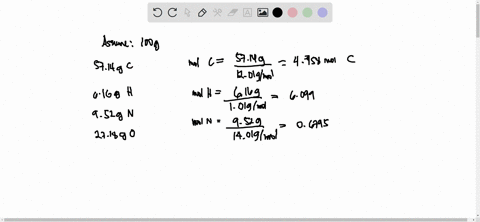 Assume: 100g
57.14g C
6.16g H
9.52g N
27.18g O
mol C = 57.14g / 12.01g/mol = 4.758 mol C
mol H = 6.16g / 1.01g/mol = 6.099
mol N = 9.52g / 14.01g/mol = 0.6795